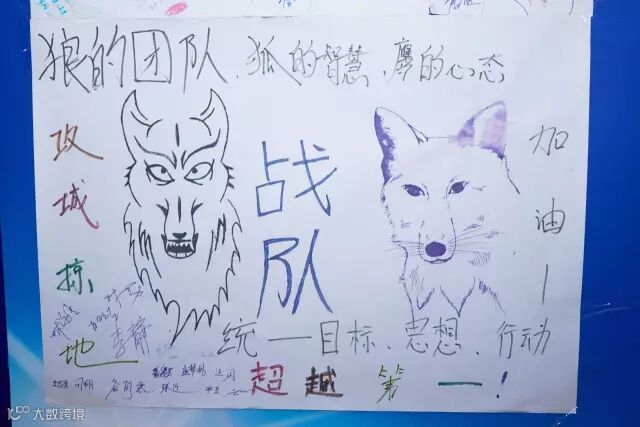 狼的团队、狐的智慧、鹰的心态
攻城掠地
战队
加油！
李静
统一目标、思想、行动
超越第一！
大数跨境